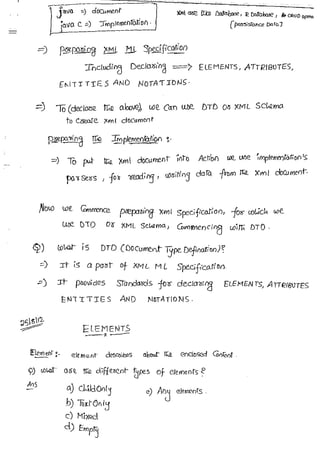 Java => document
Java C => Implementation.
XML are like Database, & Database, & CRUD oprns
(persistence Data)
=> preparing XML ML Specification
Including Declaring ==> ELEMENTS, ATTRIBUTES,
ENTITIES AND NOTATIONS.
=> To (declare the above) we can use DTD or XML Schema
to create xml document
preparing The Implementation :-
=> To put the xml document into Action we use implementation's
parsers, for reading, writing data from the xml document.
Now we Commence preparing xml specification, for which we
use DTD or XML Schema, Commencing with DTD.
Q) what is DTD (Document Type Defination)?
=> It is a part of XML ML Specification
=> It provides Standards for declaring ELEMENTS, ATTRIBUTES
ENTITIES AND NOTATIONS.
25/8/12.
ELEMENTS
Element :- element describes about the enclosed Content.
Q) what are the different types of elements?
Ans a) Child Only e) Any elements.
b) Text Only
c) Mixed
d) Empty